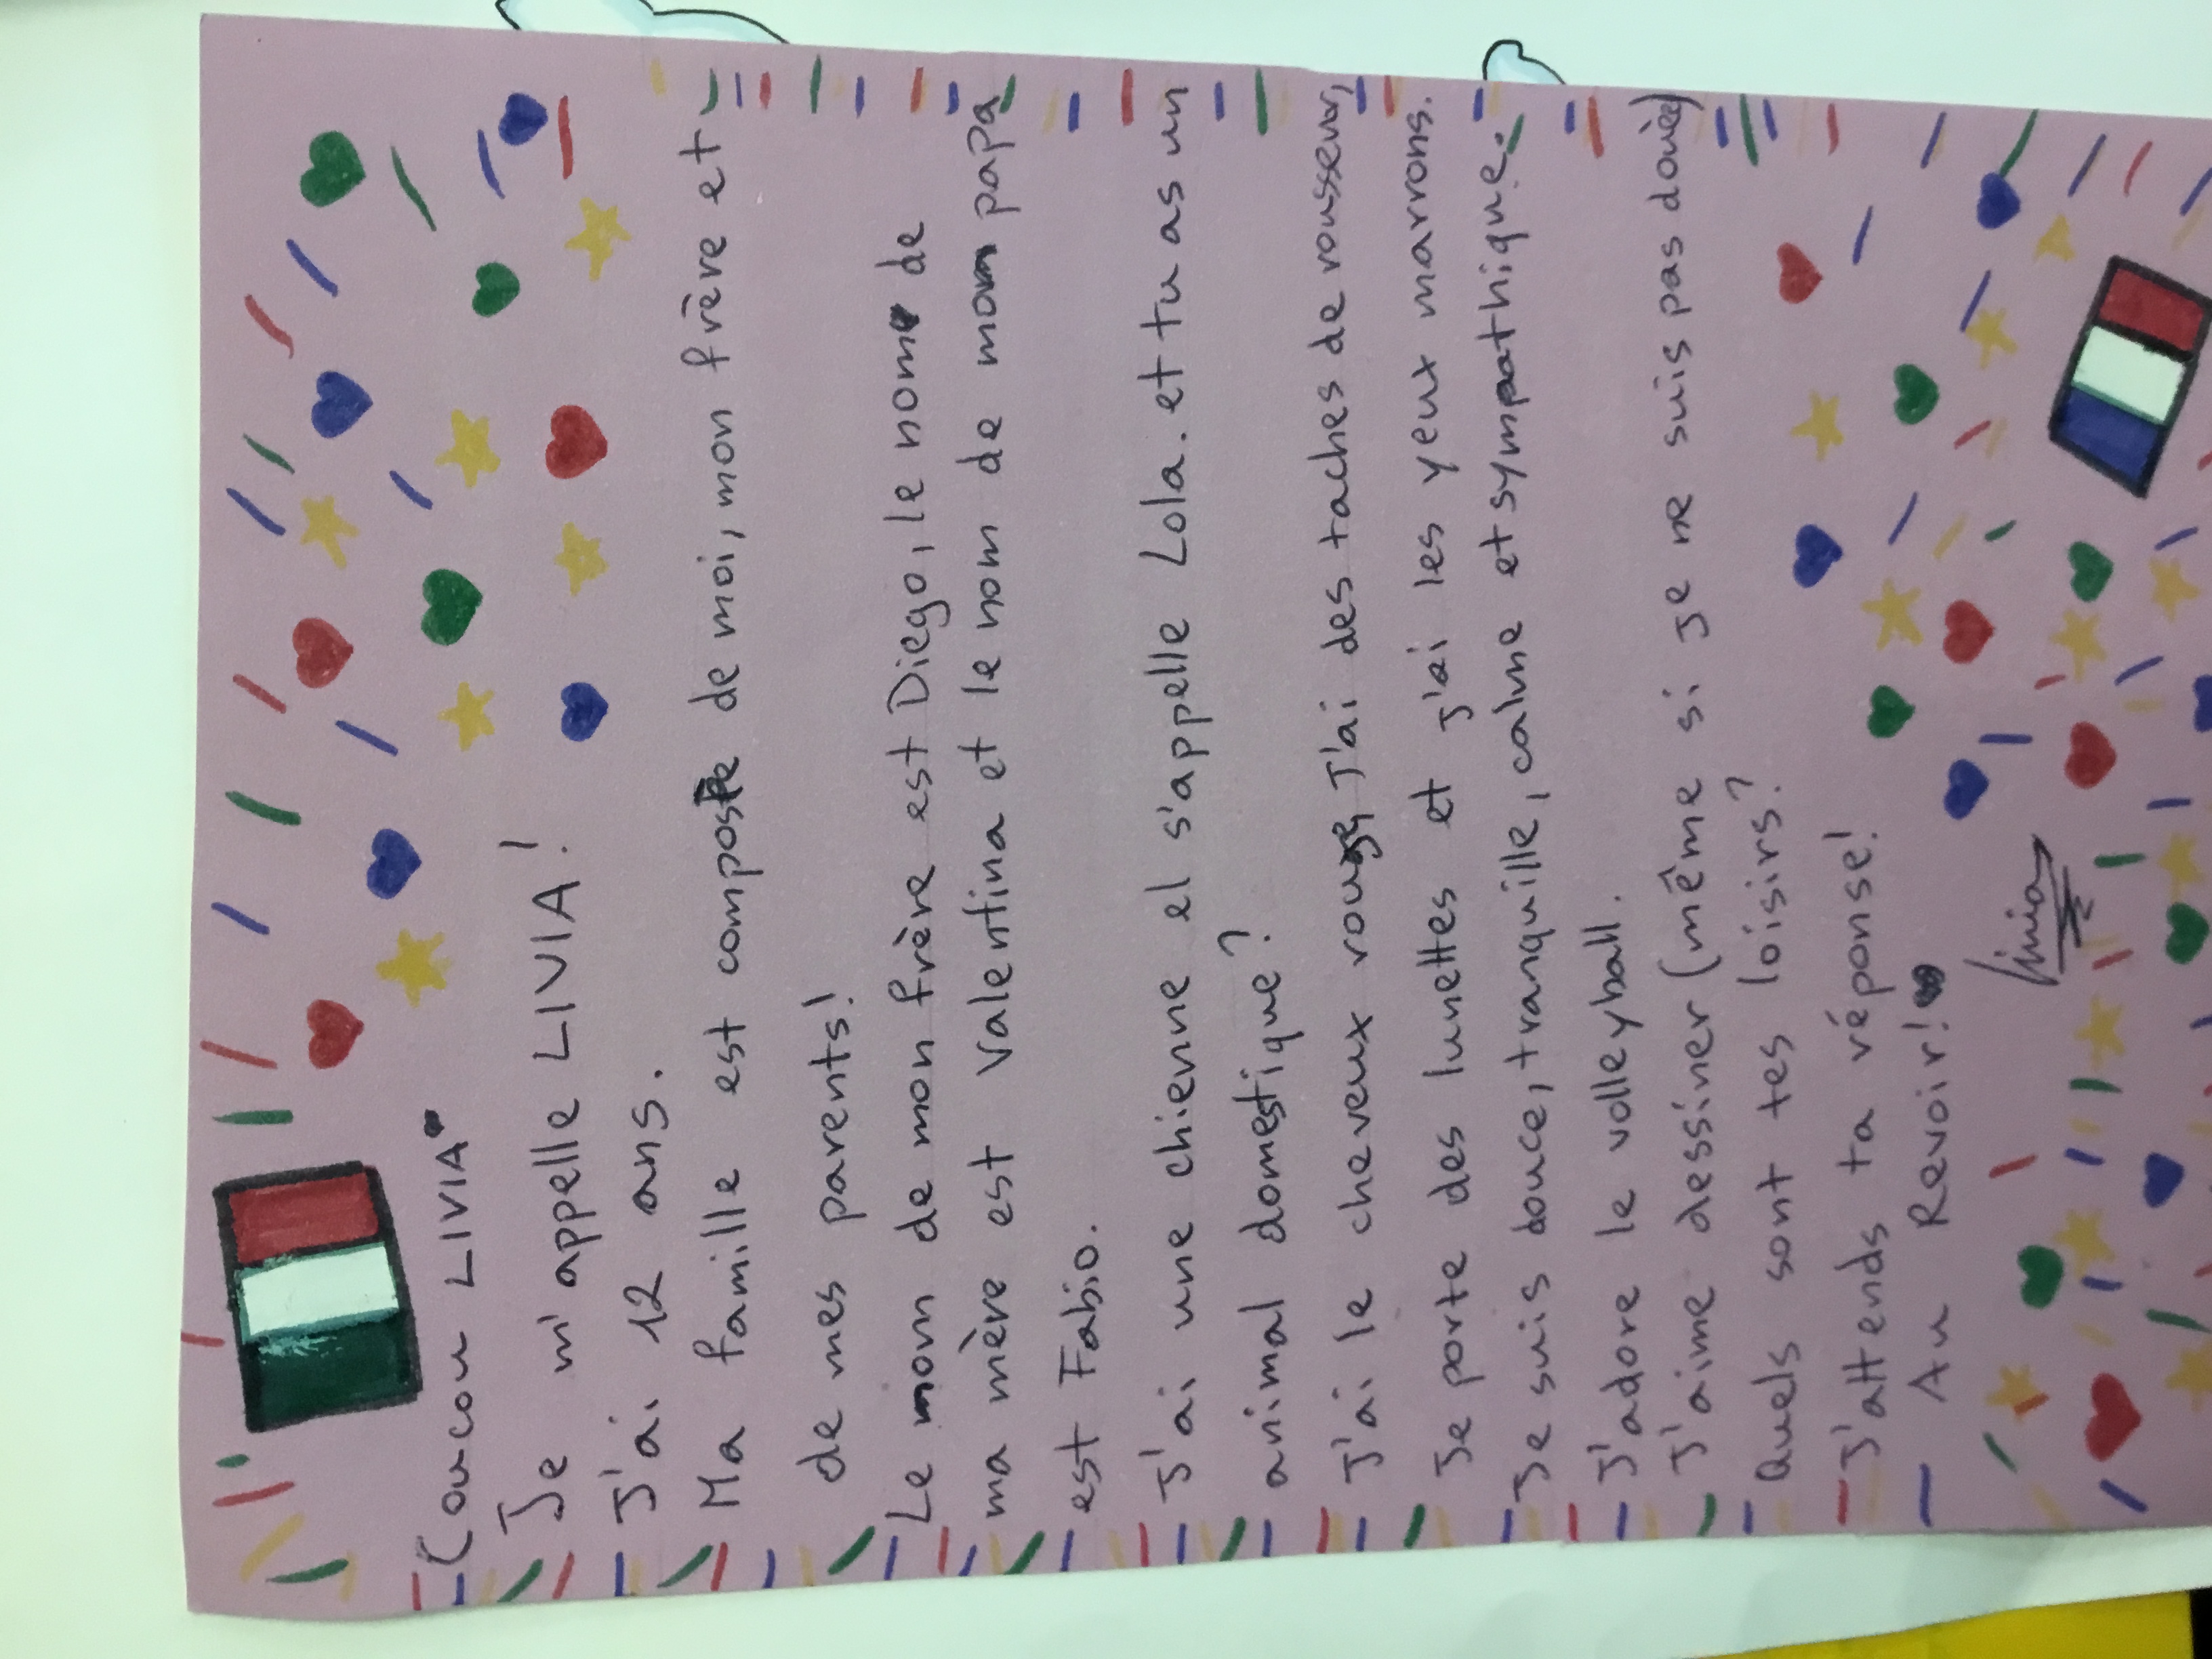 Coucou LIVIA
Je m'appelle LIVIA!
J'ai 12 ans.
Ma famille est composte de moi, mon frère et
de mes parents!
Le nom de mon frère est Diego, le nome de
ma mère est Valentina et le nom de mon papa
est Fabio.
J'ai une chienne el s'appelle Lola. et tu as un
animal domestique?
J'ai le cheveux rouge, J'ai des taches de rousseur,
Je porte des lunettes et J'ai les yeux marrons.
Je suis douce, tranquille, calme et sympathique.
J'adore le volleyball.
J'aime dessiner (même si je ne suis pas douée)
Quels sont tes loisirs?
J'attends ta réponse!
Au Revoir!
Livia